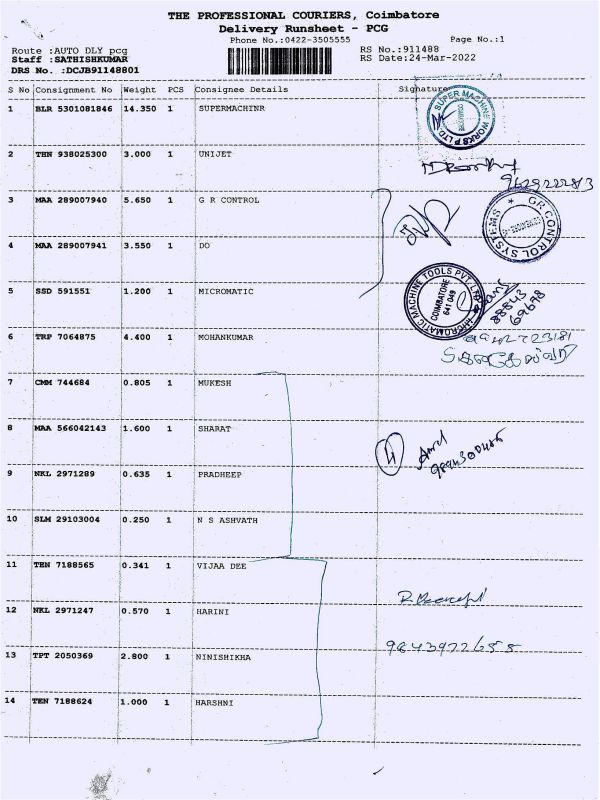 THE PROFESSIONAL COURIERS, Coimbatore
Delivery Runsheet - PCG
Phone No.:0422-3505555 Page No.:1
Route :AUTO DLY pcg RS No.:911488
Staff :SATHISHKUMAR RS Date:24-Mar-2022
DRS No. :DCJB91148801
S No Consignment No Weight PCS Consignee Details Signature
1 BLR 5301081846 14.350 1 SUPERMACHINR
SUPER MACHINE WORKS P LTD
COIMBATORE
2 THN 938025300 3.000 1 UNIJET
9629222813
3 MAA 289007940 5.650 1 G R CONTROL
GR CONTROL SYSTEMS
4 MAA 289007941 3.550 1 DO
5 SSD 591551 1.200 1 MICROMATIC
MICROMATIC MACHINE TOOLS PVT. LTD
COIMBATORE
641 049
88843
69698
6 TRP 7064875 4.400 1 MOHANKUMAR
9942723181
7 CMM 744684 0.805 1 MUKESH
8 MAA 566042143 1.600 1 SHARAT
4
9 NKL 2971289 0.635 1 PRADHEEP
10 SLM 29103004 0.250 1 N S ASHVATH
11 TEN 7188565 0.341 1 VIJAA DEE
12 NKL 2971247 0.570 1 HARINI
13 TPT 2050369 2.800 1 NINISHIKHA
9843922655
14 TEN 7188624 1.000 1 HARSHNI